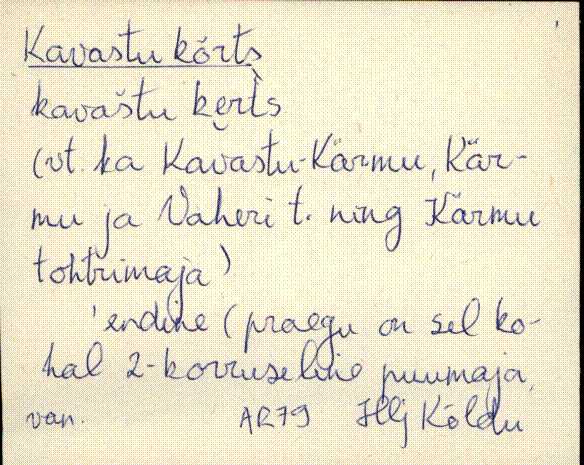 Kavastu kõrts
kavaštu kẹrt̀s
(vt. ka Kavastu-Kärmu, Kär-
mu ja Vaheri t. ning Kärmu
tohtrimaja)
'endine (praegu on sel ko-
hal 2-korruseline puumaja,
van. AR79 Hlj Kõldu